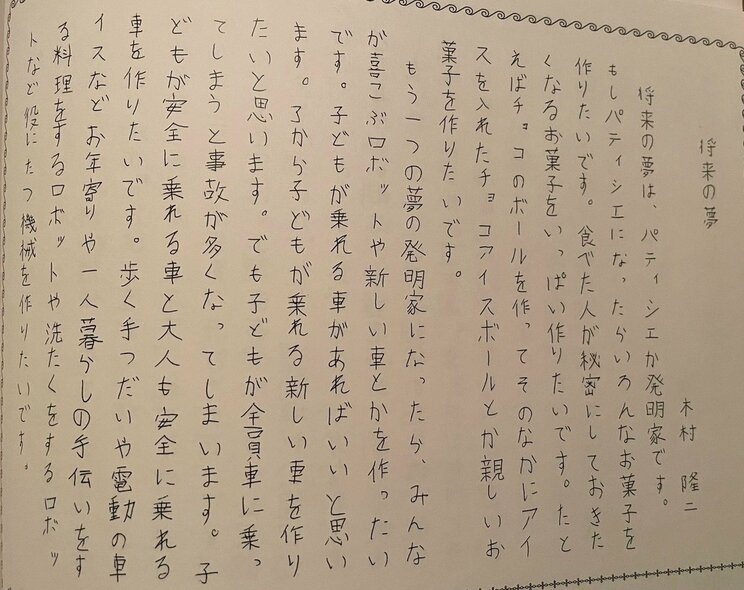 将来の夢
木村 隆二
将来の夢は、パティシエか発明家です。
もしパティシエになったらいろんなお菓子を
作りたいです。食べた人が秘密にしておきた
くなるお菓子をいっぱい作りたいです。たと
えばチョコのボールを作ってそのなかにアイ
スを入れたチョコアイスボールとか親しいお
菓子を作りたいです。
もう一つの夢の発明家になったら、みんな
が喜こぶロボットや新しい車とかを作ったい
です。子どもが乗れる車があればいいと思い
ます。了から子どもが乗れる新しい車を作り
たいと思います。でも子どもが全員車に乗っ
てしまうと事故が多くなってしまいます。子
どもが安全に乗れる車と大人も安全に乗れる
車を作りたいです。歩く手つだいや電動の車
イスなどお年寄りや一人暮らしの手伝いをす
る料理をするロボットや洗たくをするロボッ
トなど役にたつ機械を作りたいです。